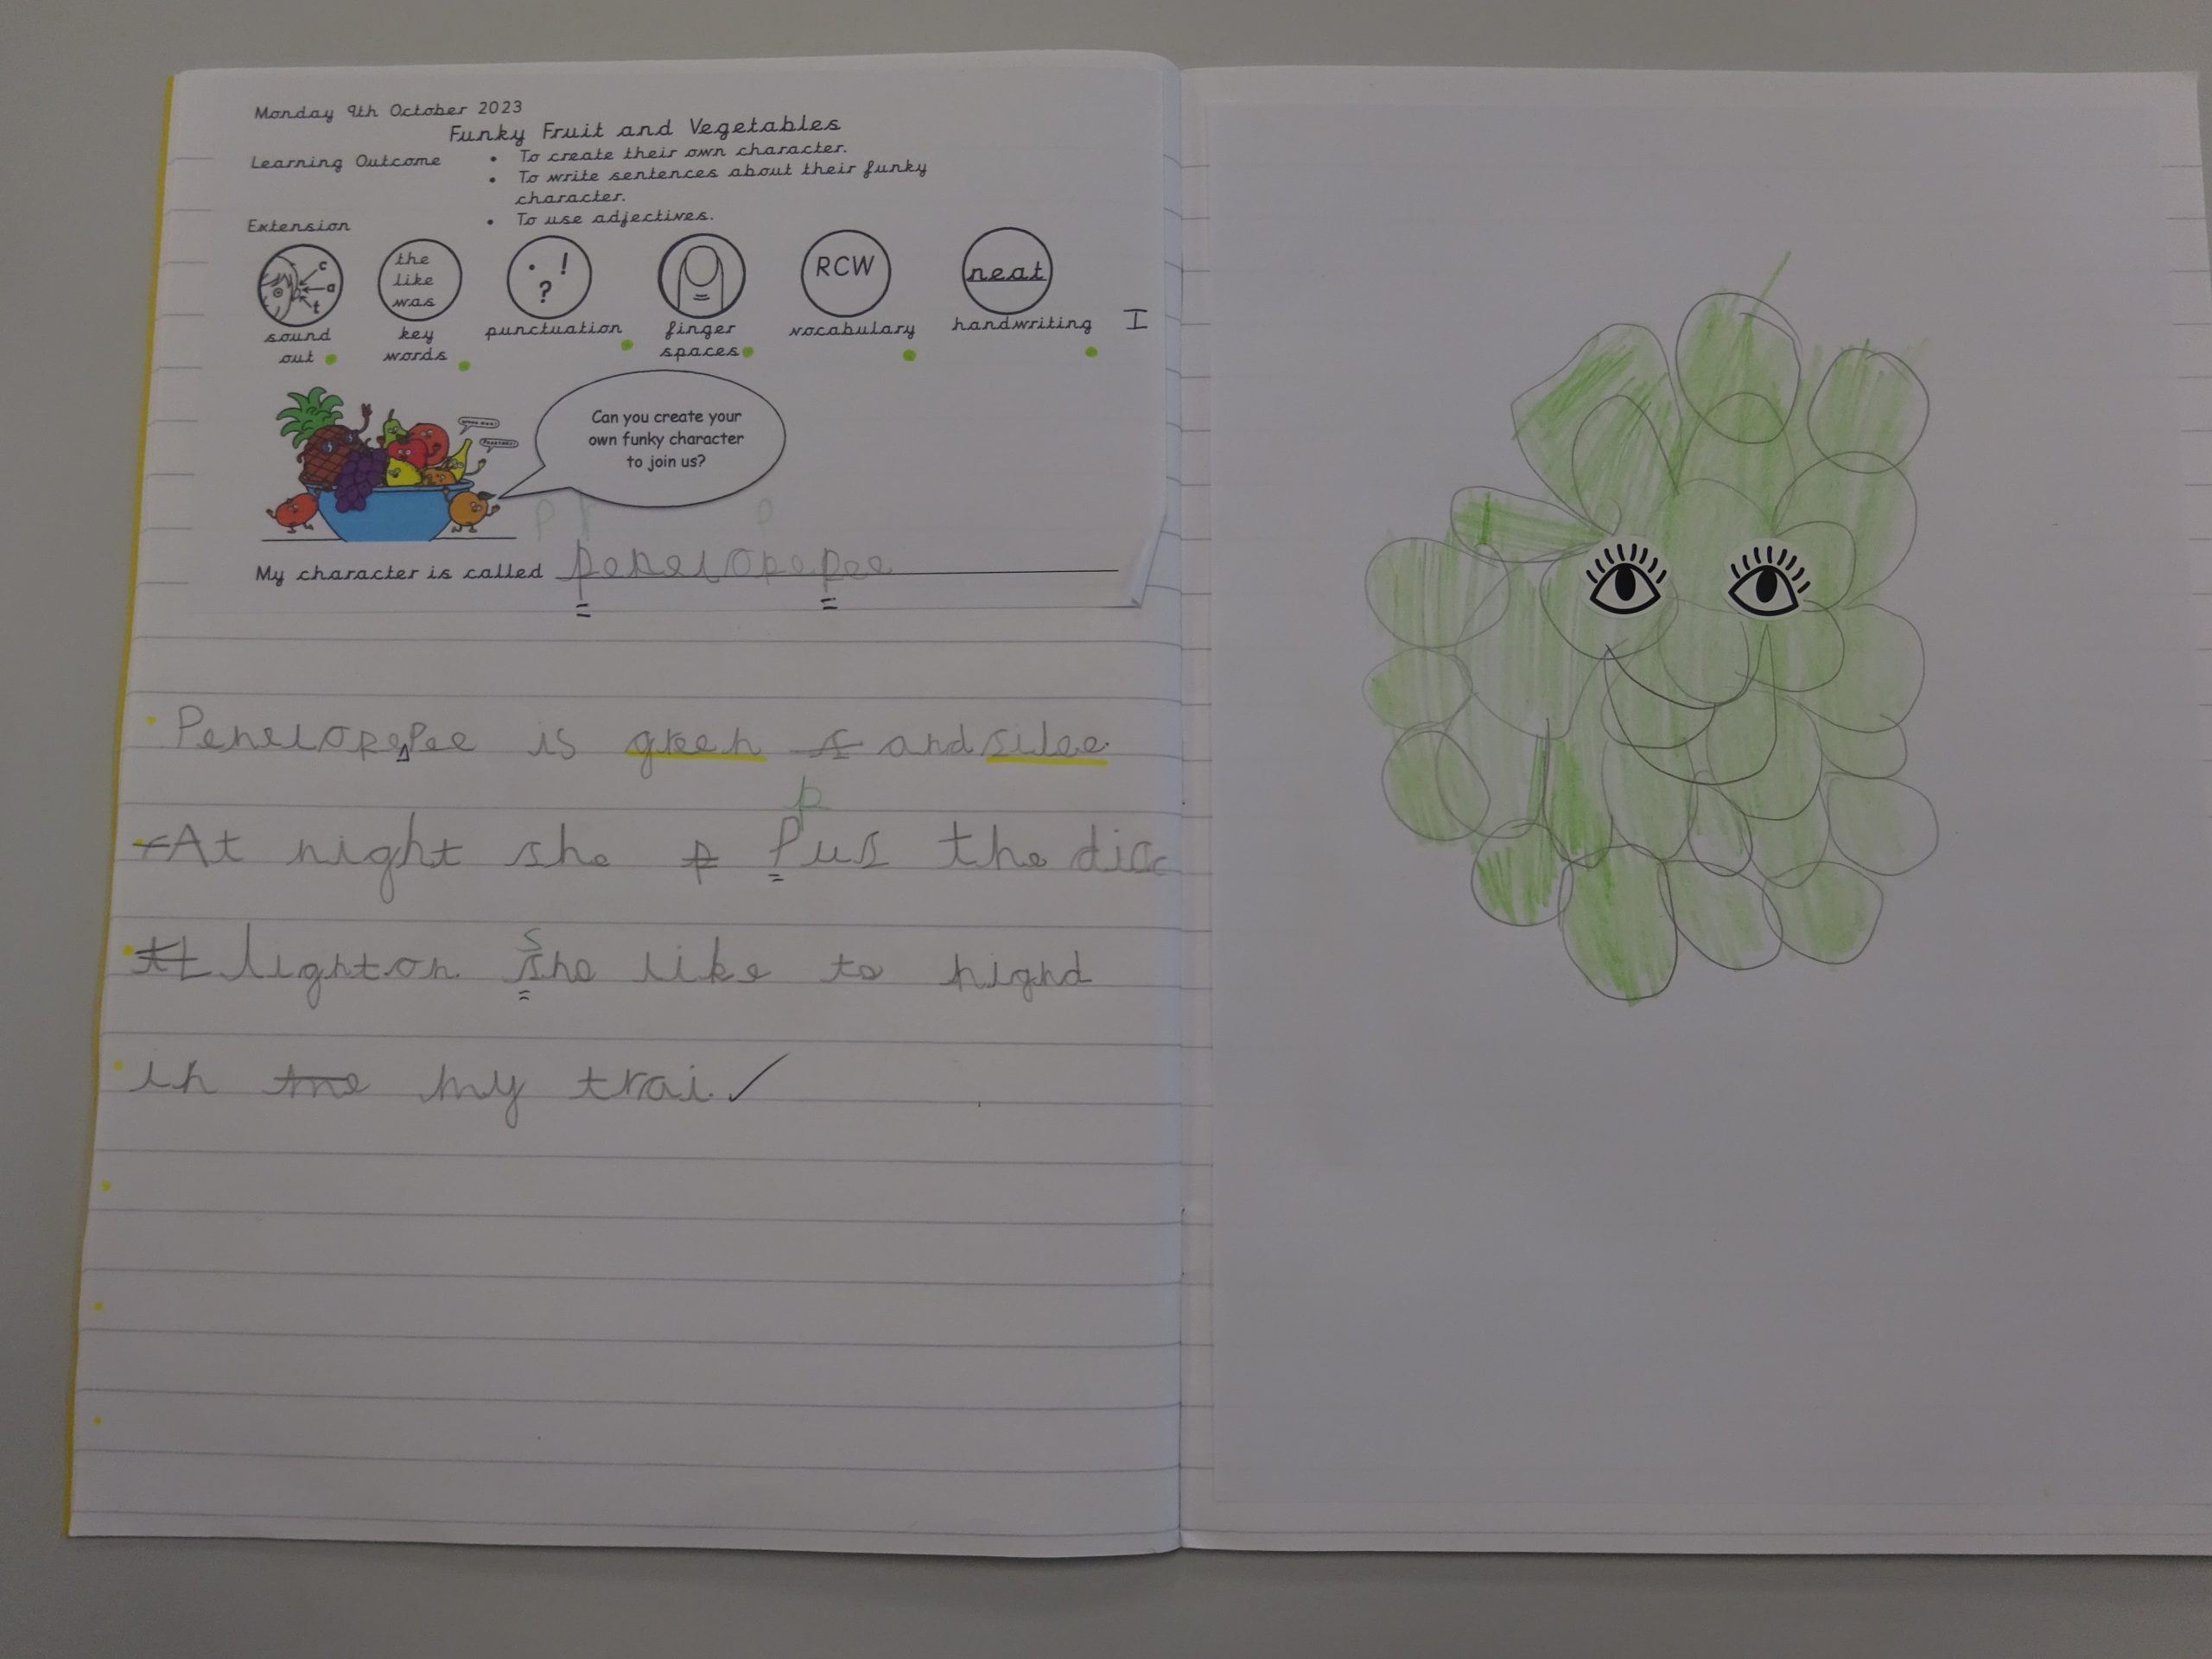 Monday 9th October 2023
Funky Fruit and Vegetables
Learning Outcome
• To create their own character.
• To write sentences about their funky
character.
• To use adjectives.
Extension
c
a
t
the
like
was
. !
?
RCW
neat
sound
out
key
words
punctuation
finger
spaces
vocabulary
handwriting
I
Can you create your
own funky character
to join us?
P P P
My character is called penelopepee
PenelopePee is green and silee.
p
At night she Pus the disc
S
light on she like to nighd
in my trai.